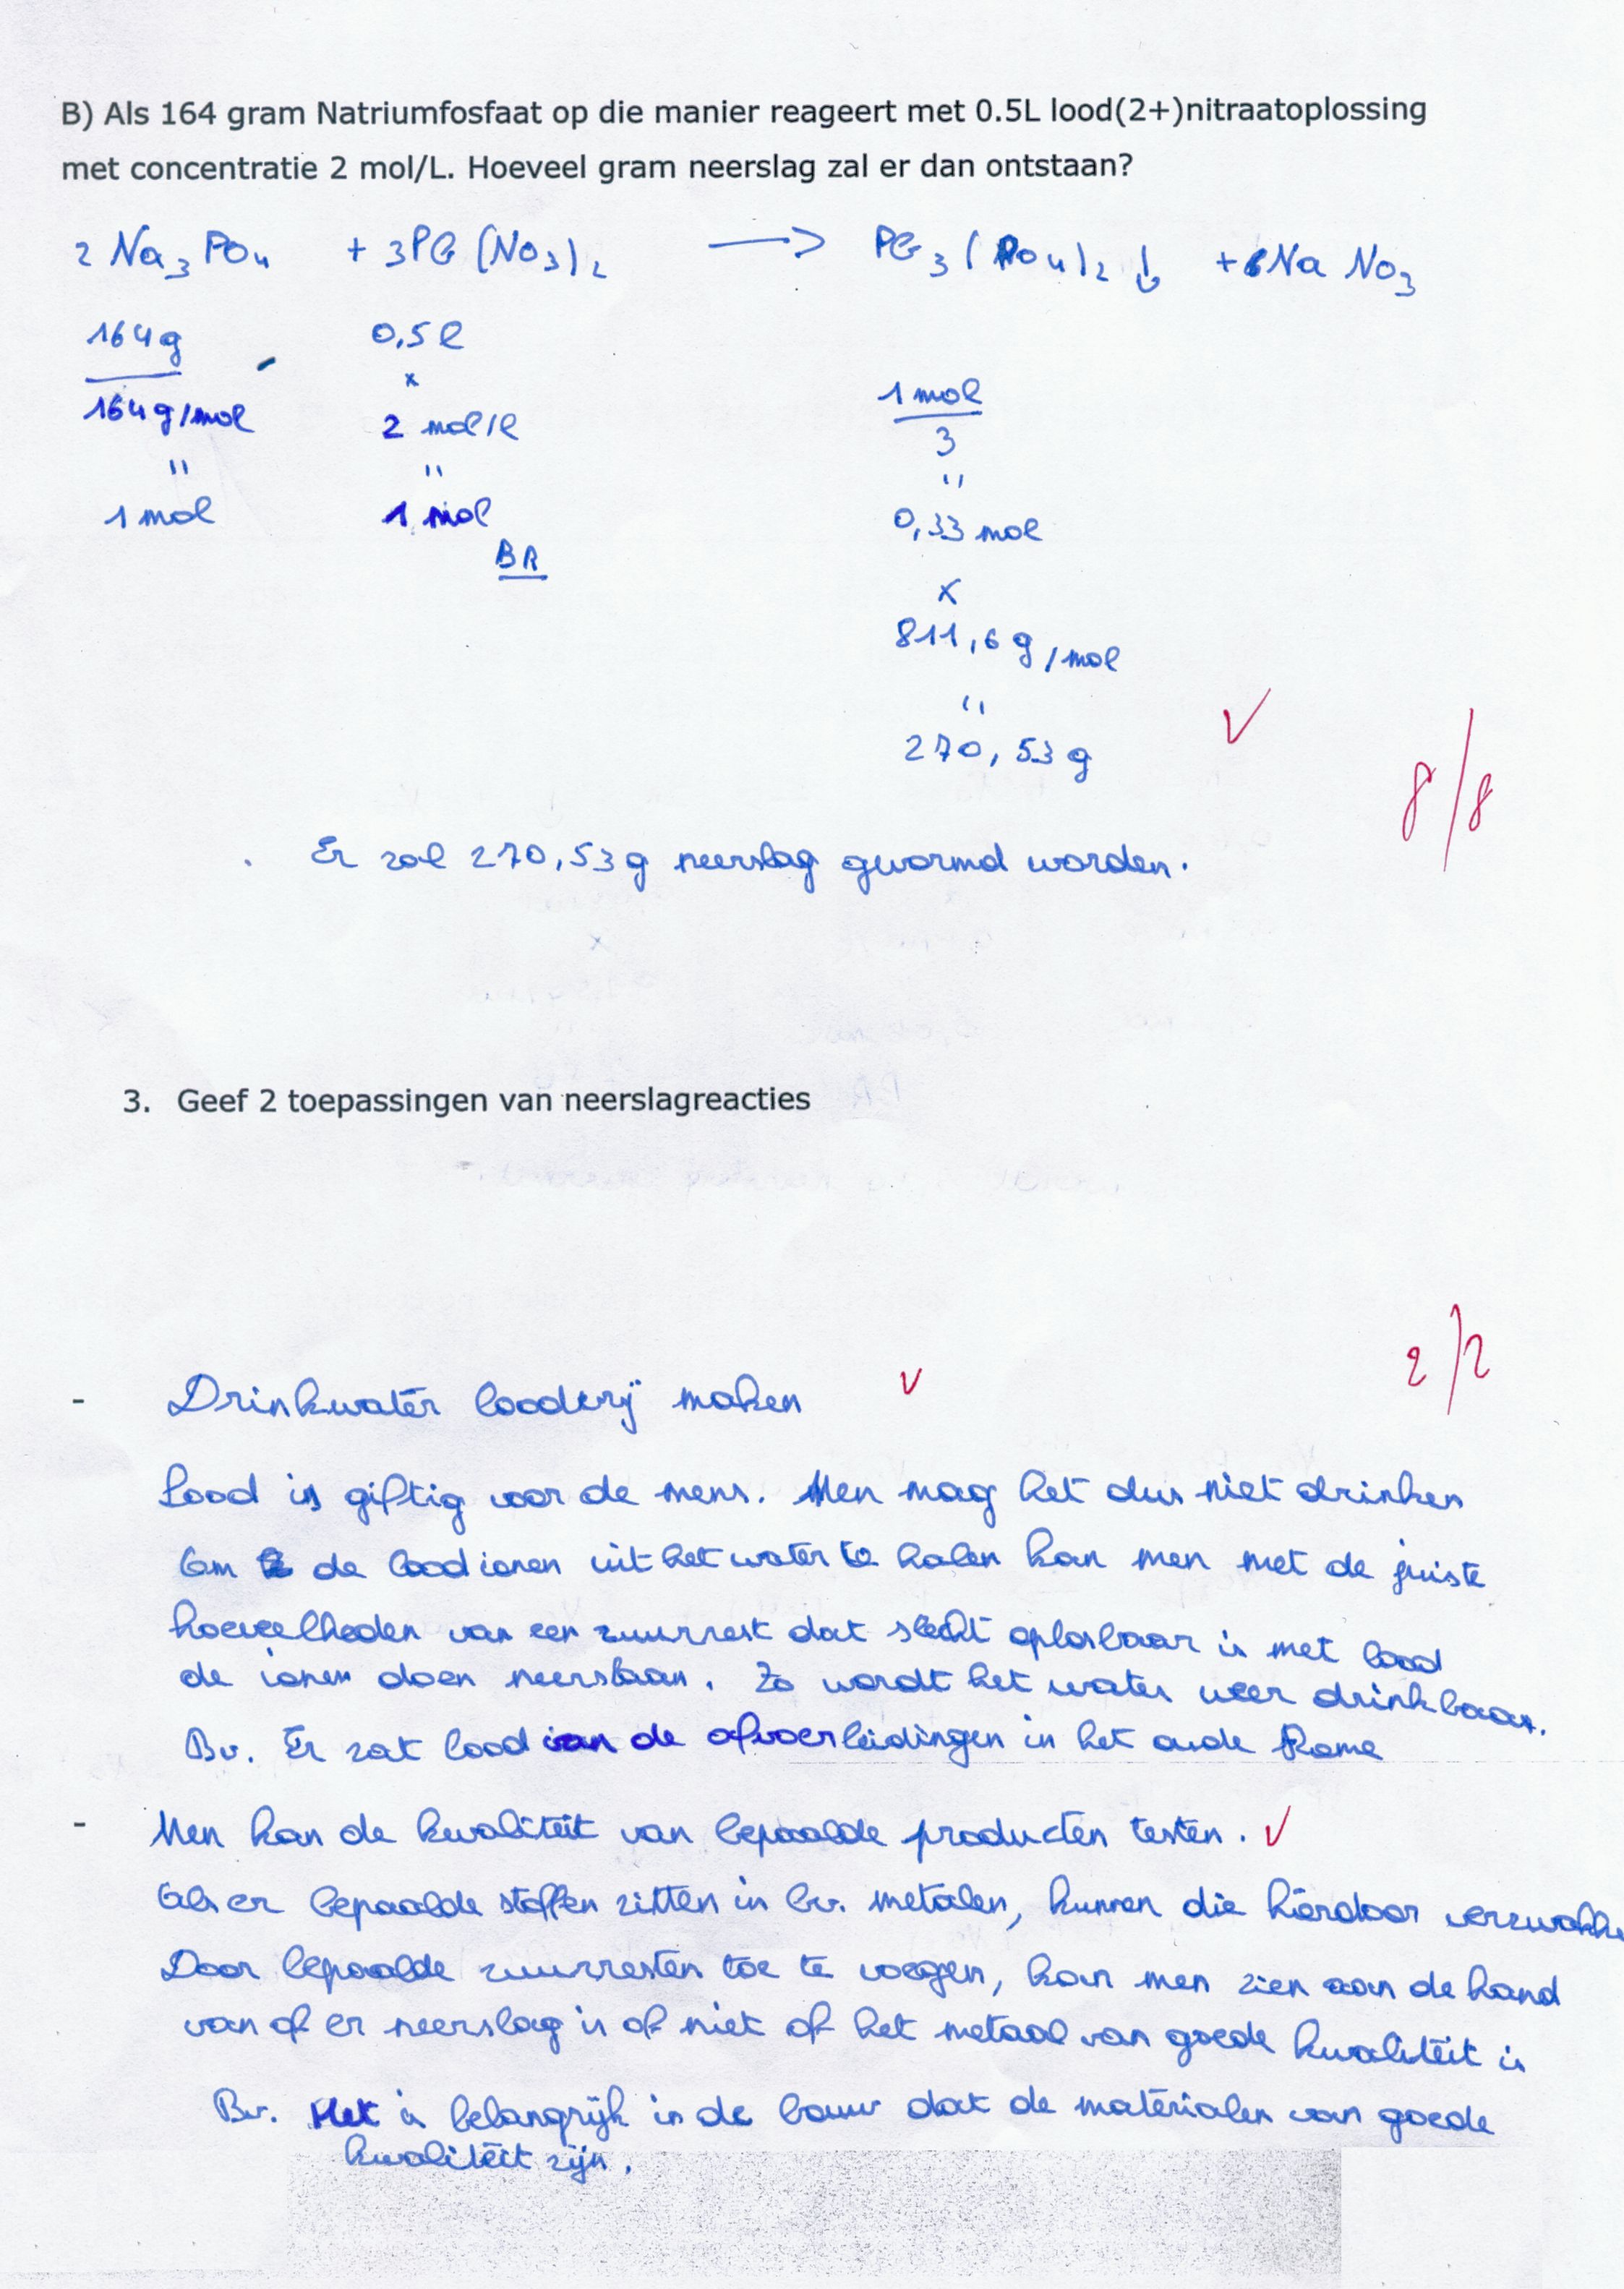 B) Als 164 gram Natriumfosfaat op die manier reageert met 0.5L lood(2+)nitraatoplossing
met concentratie 2 mol/L. Hoeveel gram neerslag zal er dan ontstaan?
2 Na3PO4 + 3Pb(NO3)2 ⟶ Pb3(PO4)2 ↓ + 6NaNO3
164g 0,5l
164g/mol x 1 mol
2 mol/l 3
" " "
1 mol 1 mol 0,33 mol
BR
x
811,6 g/mol
"
270,53 g ✓
8/8
Er zal 270,53g neerslag gevormd worden.
3. Geef 2 toepassingen van neerslagreacties
2/2
- Drinkwater loodvrij maken ✓
Lood is giftig voor de mens. Men mag het dus niet drinken
Om de loodionen uit het water te halen kan men met de juiste
hoeveelheden van een zuurrest dat slecht oplosbaar is met lood
de ionen doen neerslaan. Zo wordt het water weer drinkbaar.
Bv. Er zat lood van de afvoerleidingen in het oude Rome
- Men kan de kwaliteit van bepaalde producten testen. ✓
Als er bepaalde stoffen zitten in bv. metalen, kunnen die hierdoor verzwakke
Door bepaalde zuurresten toe te voegen, kan men zien aan de hand
van of er neerslag is of niet of het metaal van goede kwaliteit is
Bv. Het is belangrijk in de bouw dat de materialen van goede
kwaliteit zijn.